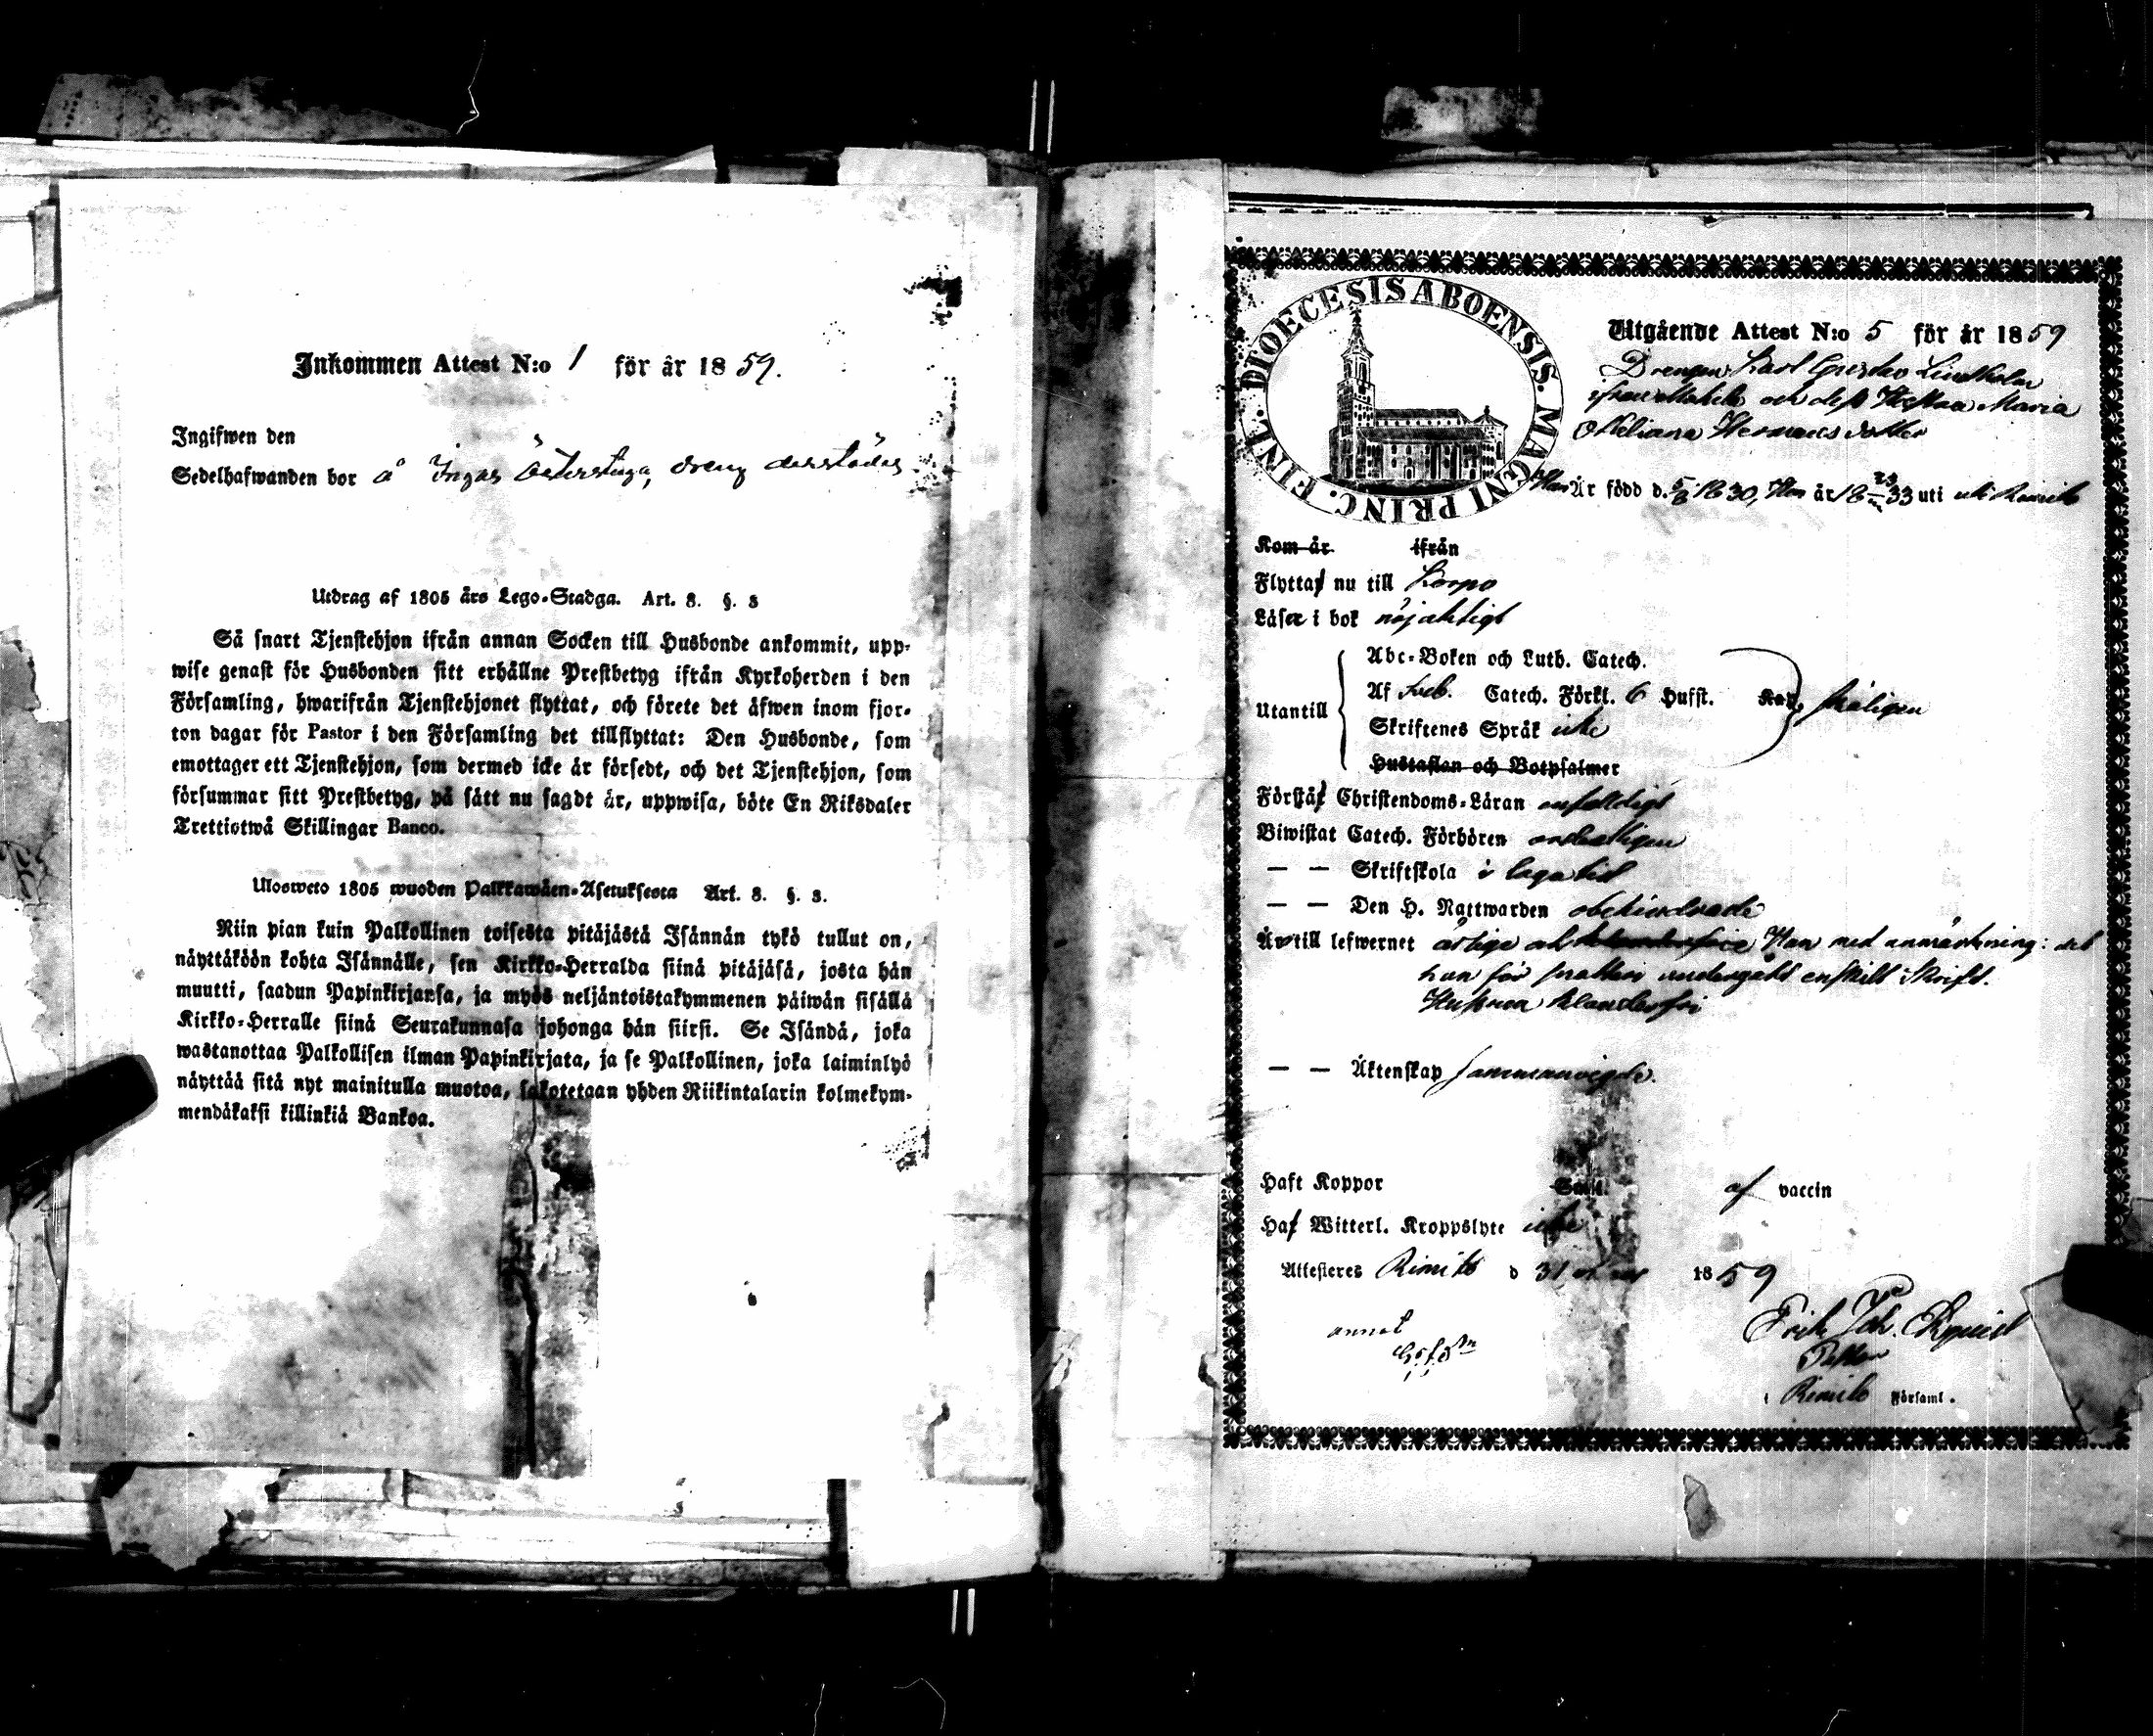 Inkommen Attest N:o 1 för år 1859.
Ingifwen den
Sedelhafwanden bor å Ingas Österstuga, dreng derstädes
Utdrag af 1805 års Lego-Stadga. Art. 8. §. 3
Så snart Tjenstehjon ifrån annan Socken till Husbonde ankommit, upp-
wise genast för Husbonden sitt erhållne Prestbetyg ifrån Kyrkoherden i den
Församling, hwarifrån Tjenstehjonet flyttat, och förete det äfwen inom fjor-
ton dagar för Pastor i den Församling det tillflyttat: Den Husbonde, som
emottager ett Tjenstehjon, som dermed icke är försedt, och det Tjenstehjon, som
försummar sitt Prestbetyg, på sätt nu sagdt är, uppwisa, böte En Riksdaler
Trettiotwå Skillingar Banco.
Ulosweto 1805 wuoden Palkkawäen-Asetuksesta Art. 8. §. 3.
Niin pian kuin Palkollinen toisesta pitäjästä Isännän tykö tullut on,
näyttäköön kohta Isännälle, sen Kirkko-Herralda siinä pitäjäsä, josta hän
muutti, saadun Papinkirjansa, ja myös neljäntoistakymmenen päiwän sisällä
Kirkko-Herralle siinä Seurakunnasa johonga hän siirsi. Se Isändä, joka
wastanottaa Palkollisen ilman Papinkirjata, ja se Palkollinen, joka laiminlyö
näyttää sitä nyt mainitulla muotoa, sakotetaan yhden Riikintalarin kolmekym-
mendäkaksi killinkiä Bankoa.
DIOECESIS ABOENSIS. MAGNI PRINC. FINL.
Utgående Attest N:o 5 för år 1859
Drengen Karl Gustav Lindholm
och dess Hustru Maria
Hermansdotter
Han Är född d. 5/8 1830, Hon är 18 33 uti Rimito
Kom år ifrån
Flyttar nu till Korpo
Läser i bok nöjaktigt
Abc-Boken och Luth. Catech.
Utantill Af Sveb. Catech. Förkl. 6 Hufst. Kan skäligen
Skriftenes Språk icke
Hustaflan och Botpsalmer
Förstår Christendoms-Läran enfaldigt
Biwistat Catech. Förhören ordentligen
— — Skriftskola i laga tid
— — Den H. Nattwarden obehindrade
Är till lefwernet ärlige och Han med anmärkning: det
han för undergått enskilt Skrift.
Hustrun klanderfri
— — Äktenskap sammanvigde.
Haft Koppor af vaccin
Har Witterl. Kroppslyte icke
Attesteres Rimito d 31 1859
annot
Erik Joh.
Pastor
i Rimito Församl.